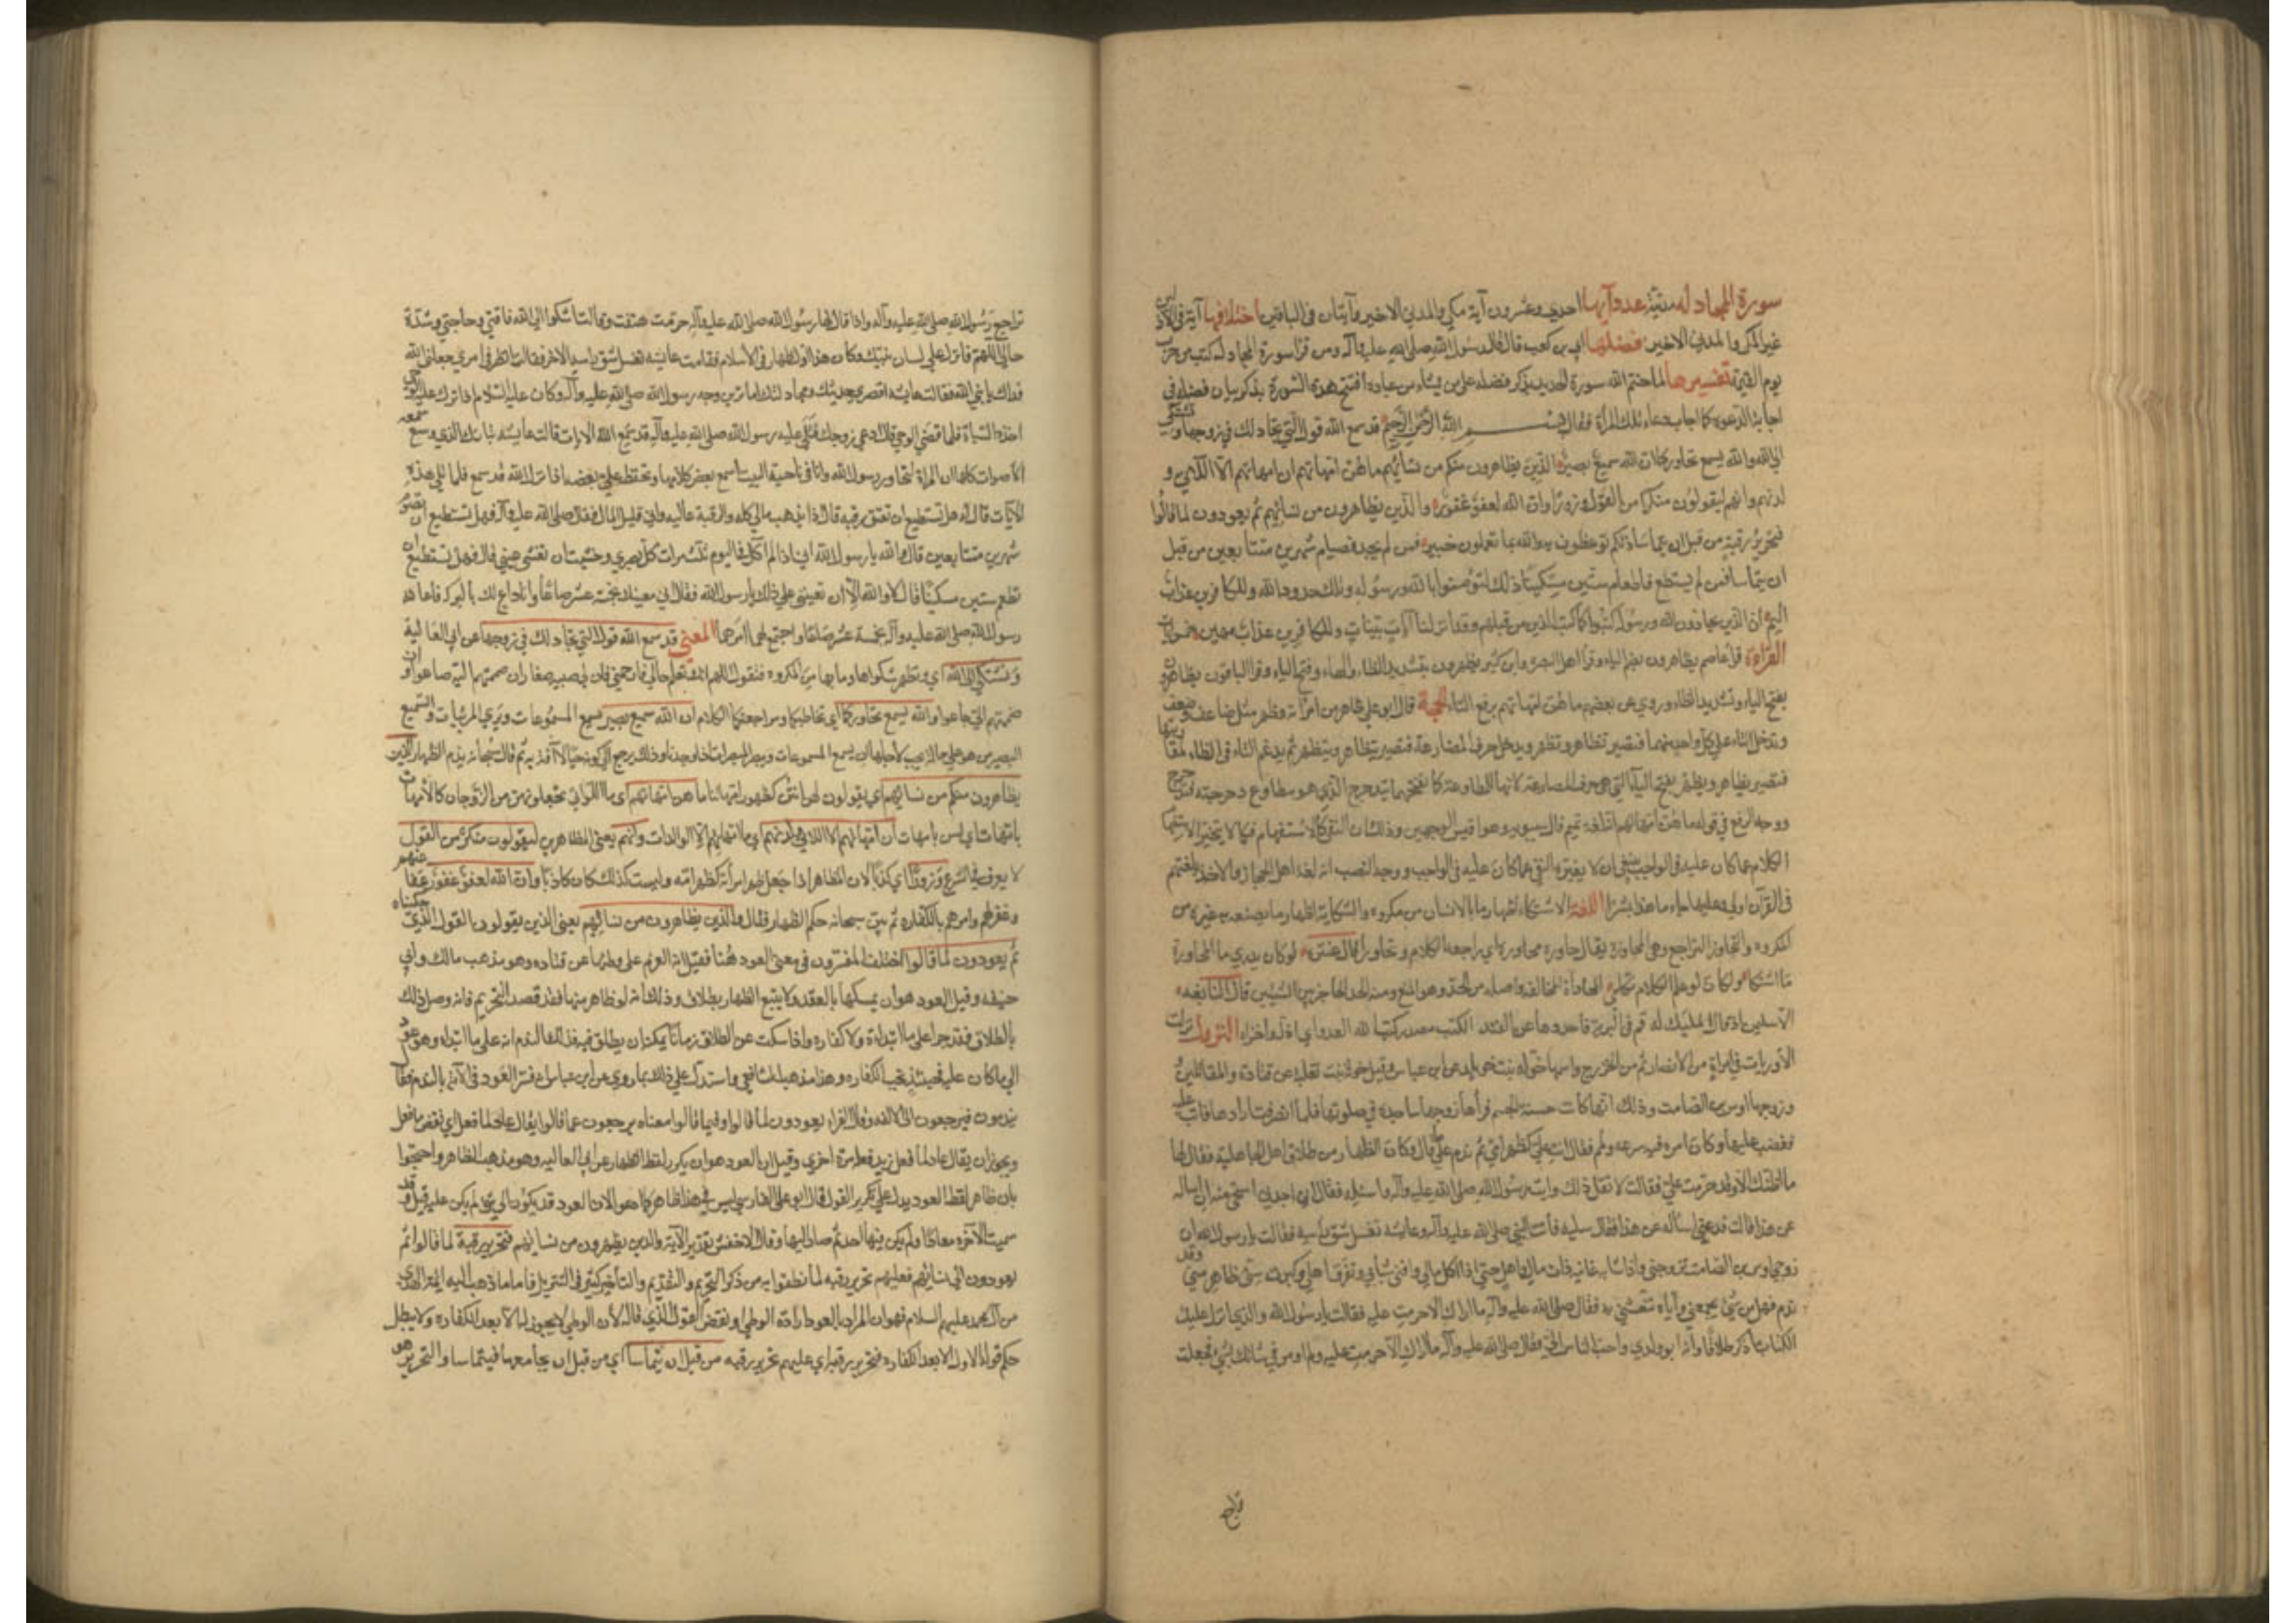 سورة المجادله مدنية عدد آيها احدي وعشرون آية مكي والمدني الاخير وآيتان في الباقين اختلافها آية في الاذلين
غير المكي والمدني الاخير فضلها ابي بن كعب قال قال رسول الله صلى الله عليه وآله ومن قرأ سورة المجادله كتب من حزب
يوم القيمة تفسيرها لما ختم الله سورة الحديد بذكر فضله على من يشاء من عباده افتتح هذه السورة بذكر بيان فضله في
اجابة الدعوه كما اجاب دعاء تلك المرأة فقال بسم الله الرحمن الرحيم قد سمع الله قول التي تجادلك في زوجها وتشتكي
الى الله والله يسمع تحاوركما ان الله سميع بصير الذين يظاهرون منكم من نسائهم ما هن امهاتهم ان امهاتهم الا اللائي و
لدنهم وانهم ليقولون منكرا من القول وزورا وان الله لعفو غفور والذين يظاهرون من نسائهم ثم يعودون لما قالوا
فتحرير رقبة من قبل ان يتماسا ذلكم توعظون به والله بما تعملون خبير فمن لم يجد فصيام شهرين متتابعين من قبل
ان يتماسا فمن لم يستطع فاطعام ستين مسكينا ذلك لتؤمنوا بالله ورسوله وتلك حدود الله وللكافرين عذاب
اليم ان الذين يحادون الله ورسوله كبتوا كما كبت الذين من قبلهم وقد انزلنا آيات بينات وللكافرين عذاب مهين
القراءة قرأ عاصم يظاهرون بضم الياء وقرأ اهل البصرة وابن كثير يظهرون بتشديد الظاء والهاء وفتح الياء وقرأ الباقون يظاهرون
بفتح الياء وتشديد الظاء وروي عن بعضهم ما هن امهاتهم برفع التاء الحجة قال ابو علي ظاهر من امرأته وظهر مثل ضاعف وضعف
وتدخل التاء على كل واحد منهما فتصير تظاهر وتظهر ويدخل حرف المضارعة فتصير يتظاهر ويتظهر ثم يدغم التاء في الظاء
فتصير يظاهر ويظهر بفتح الياء التي هي حرف المضارعة لانها للمطاوعة كما تفتحها في يتدحرج الذي هو مطاوع دحرجته فتدحرج
ووجه الرفع في قوله ما هن امهاتهم انه لغة تميم قال سيبويه وهو اقيس الوجهين وذلك ان النفي كالاستفهام فكما لا يغير الاستفهام
الكلام عما كان عليه في الواجب ينبغي ان لا يغيره النفي عما كان عليه في الواجب ووجه النصب انه لغة اهل الحجاز والاخذ بلغتهم
في القرآن اولى وعليها جاء ما هذا بشرا اللغة الاشتكاء اظهار ما بالانسان من مكروه والشكاية اظهار ما يصنعه به غيره من
المكروه والتحاور التراجع وهي المحاورة يقال حاوره محاورة اي راجعه الكلام وتحاورا قال عنتره لو كان يدري ما المحاورة
ما اشتكى ولكان لو علم الكلام مكلمي المحادة المخالفة واصله من الحد وهو المنع ومنه الحد الحاجز بين الشيئين قال النابغه
الا سليمان اذ قال المليك له قم في البرية فاحددها عن الفند الكبت مصدر كبت الله العدو اي اذله واخزاه النزول نزلت
الآيات في امرأة من الانصار ثم من الخزرج واسمها خولة بنت خويلد عن ابن عباس وقيل خولة بنت ثعلبه عن قتادة والمقاتلين
وزوجها اوس بن الصامت وذلك انها كانت حسنة الجسم فرآها زوجها ساجدة في صلوتها فلما انصرفت ارادها فابت عليه
فغضب عليها وكان امرء فيه سرعه ولمم فقال انت علي كظهر امي ثم ندم على ما قال وكان الظهار من طلاق اهل الجاهلية فقال لها
ما اظنك الا وقد حرمت علي فقالت لا تقل ذلك وايت رسول الله صلى الله عليه وآله واسئله فقال اني اجدني استحي منه ان اساله
عن هذا قالت فدعني اسأله عن هذا فقال سليه فأتت النبي صلى الله عليه وآله وعايشه تغسل شق رأسه فقالت يا رسول الله ان
زوجي اوس بن الصامت تزوجني وانا شابة غانية ذات مال واهل حتى اذا اكل مالي وافنى شبابي وتفرق اهلي وكبرت سني ظاهر مني وقد
ندم فهل من شئ يجمعني واياه تنعشني به فقال صلى الله عليه وآله ما اراك الا حرمت عليه فقالت يا رسول الله والذي انزل عليك
الكتاب ما ذكر طلاقا وانه ابو ولدي واحب الناس الي فقال صلى الله عليه وآله ما اراك الا حرمت عليه ولم اومر في شانك بشئ فجعلت
تراجع
تراجع رسول الله صلى الله عليه وآله واذا قال لها رسول الله صلى الله عليه وآله حرمت عليه هتفت وقالت اشكوا الى الله فاقتي وحاجتي وشدة
حالي اللهم فانزل على لسان نبيك وكان هذا اول ظهار في الاسلام فقامت عايشه تغسل شق راسه الاخر فقالت انظر في امري جعلني الله
فداك يا نبي الله فقالت عايشه اقصري حديثك ومجادلتك اما ترين وجه رسول الله صلى الله عليه وآله وكان عليه السلام اذا نزل عليه الوحي
اخذه السبات فلما قضي الوحي قال ادعي زوجك فتلى عليه رسول الله صلى الله عليه وآله قد سمع الله الآيات قالت عايشه تبارك الذي وسع سمعه
الاصوات كلها ان المرأة لتحاور رسول الله وانا في ناحية البيت اسمع بعض كلامها ويخفى علي بعضه اذ انزل الله قد سمع فلما تلى هذه
الآيات قال له هل تستطيع ان تعتق رقبه قال اذا يذهب مالي كله والرقبة غاليه واني قليل المال فقال صلى الله عليه وآله فهل تستطيع ان تصوم
شهرين متتابعين قال والله يا رسول الله اني اذا لم آكل في اليوم ثلث مرات كل بصري وخشيت ان تغشى عيني قال فهل تستطيع ان
تطعم ستين مسكينا قال لا والله الا ان تعينني على ذلك يا رسول الله فقال اني معينك بخمسة عشر صاعا وانا داع لك بالبركة فاعانه
رسول الله صلى الله عليه وآله بخمسة عشر صاعا واجتمع لهما امرهما المعنى قد سمع الله قول التي تجادلك في زوجها عن ابي العالية
وتشتكي الى الله اي وتظهر شكواها وما بها من المكروه فتقول اللهم انك تعلم حالي فارحمني فان لي صبية صغارا ان ضممتهم اليه ضاعوا وان
ضممتهم الي جاعوا والله يسمع تحاوركما اي تخاطبكما ومراجعتكما الكلام ان الله سميع بصير يسمع المسموعات ويرى المرئيات والسميع
البصير من هو على حالة يجب لاجلها ان يسمع المسموعات ويبصر المبصرات اذا وجدتا وذلك يرجع الى كونه حيا لا آفة به ثم قال سبحانه يذم الظهار الذين
يظاهرون منكم من نسائهم اي يقولون لهن انتن كظهور امهاتنا ما هن امهاتهم اي ما اللواتي يجعلونهن من الزوجات كالامهات
بامهات اي ليس بامهات ان امهاتهم الا اللائي ولدنهم اي ما امهاتهم الا الوالدات وانهم يعني المظاهرين ليقولون منكرا من القول
لا يعرف في الشرع وزورا اي كذبا لان المظاهر اذا جعل ظهر امرأته كظهر امه وليست كذلك كان كاذبا وان الله لعفو غفور عفا عنهم
وغفر لهم وامرهم بالكفاره ثم بين سبحانه حكم الظهار فقال والذين يظاهرون من نسائهم يعني الذين يقولون القول الذي حكيناه
ثم يعودون لما قالوا اختلف المفسرون في معنى العود هنا فقيل انه العزم على وطئها عن قتاده وهو مذهب مالك وابي
حنيفه وقيل العود هو ان يمسكها بالعقد ولا يتبع الظهار بطلاق وذلك انه لو ظاهر منها فقد قصد التحريم فان وصل ذلك
بالطلاق فقد جرا على ما ابتدأه ولا كفاره واذا سكت عن الطلاق زمانا يمكنه ان يطلق فيه فذلك الندم منه على ما ابتدأ وهو عود
الى ما كان عليه فحينئذ تجب الكفاره وهذا مذهب الشافعي واستدل على ذلك بما روي عن ابن عباس انه فسر العود في الآية بالندم فقال
يندمون فيرجعون الى الالفه وقال الفراء يعودون لما قالوا وفيما قالوا معناه يرجعون عما قالوا يقال عاد لما فعل اي نقض ما فعل
ويجوز ان يقال عاد لما فعل يريد فعله مرة اخرى وقيل ان العود هو ان يكرر لفظ الظهار عن ابي العاليه وهو مذهب اهل الظاهر واحتجوا
بان ظاهر لفظ العود يدل على تكرير القول قال ابو علي الفارسي ليس في هذا ظاهر كما ادعوا لان العود قد يكون الى شئ لم يكن عليه قبل وقد
سميت الآخره معادا ولم يكن فيها احد ثم صار اليها وقال الاخفش تقدير الآية والذين يظهرون من نسائهم فتحرير رقبة لما قالوا ثم
يعودون الى نسائهم فعليهم تحرير رقبه لما نطقوا به من ذكر التحريم والتقديم والتأخير كثير في التنزيل فاما ما ذهب اليه ائمة الهدى
من آل محمد عليهم السلام فهو ان المراد بالعود ارادة الوطي ونقض القول الذي قاله لان الوطي لا يجوز له الا بعد الكفاره ولا يبطل
حكم قوله الاول الا بعد الكفاره فتحرير رقبة اي فعليهم تحرير رقبه من قبل ان يتماسا اي من قبل ان يجامعها فيتماسا والتحرير هو